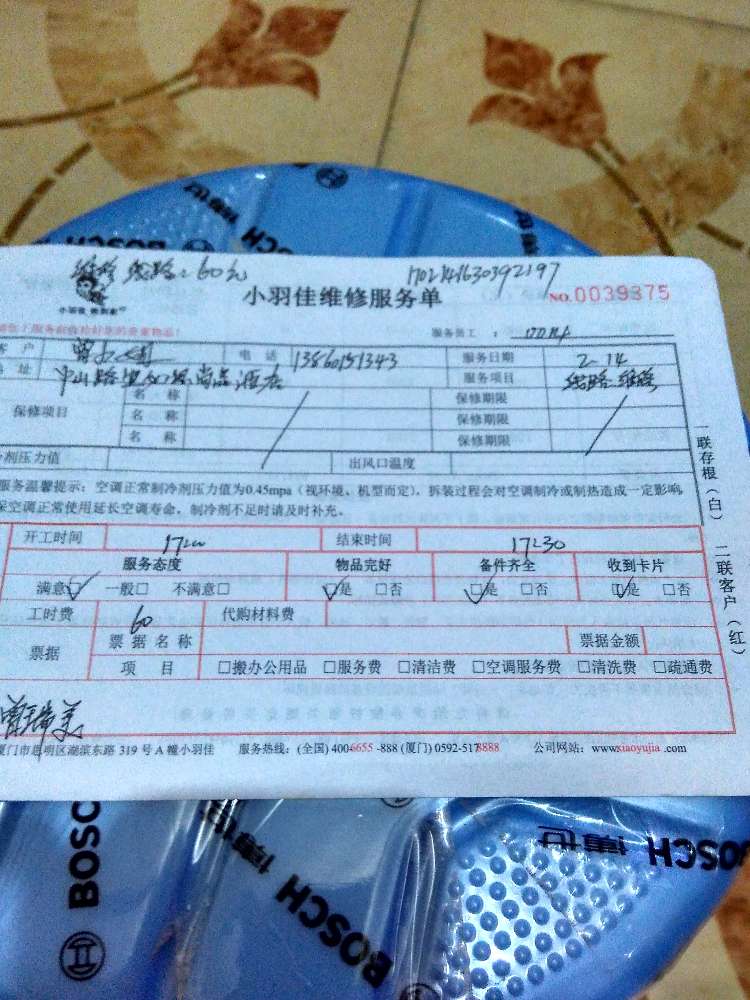 BOSCH 博世
维修线路:60元 1702141630392197
小羽佳维修服务单 NO.0039375
服务员工:
客户 电话 服务日期 2-14
地址 中山路 尚品酒店 服务项目 线路维修
保修项目 名称 保修期限
名称 保修期限
名称 保修期限
剂压力值 出风口温度
服务温馨提示:空调正常制冷剂压力值为0.45mpa(视环境、机型而定),拆装过程会对空调制冷或制热造成一定影响,
空调正常使用延长空调寿命,制冷剂不足时请及时补充。
开工时间 结束时间 17:30
服务态度 物品完好 备件齐全 收到卡片
满意☑ 一般□ 不满意□ ☑是 □否 ☑是 □否 ☑是 □否
工时费 60 代购材料费
票据 票据名称 票据金额
项目 □搬办公用品 □服务费 □清洁费 □空调服务费 □清洗费 □疏通费
一联存根(白) 二联客户(红)
曾瑞美
厦门市思明区湖滨东路 319 号 A 幢小羽佳 服务热线:(全国) 400-6655-888 (厦门) 0592-5178888 公司网站:www.xiaoyujia.com
BOSCH 博世
BOSCH
BOSCH